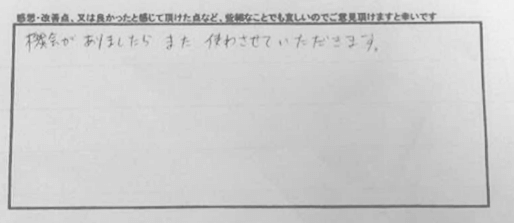 感想・改善点、又は良かったと感じて頂けた点など、些細なことでも宜しいのでご意見頂けますと幸いです
機会がありましたら また 使わさせていただきます。